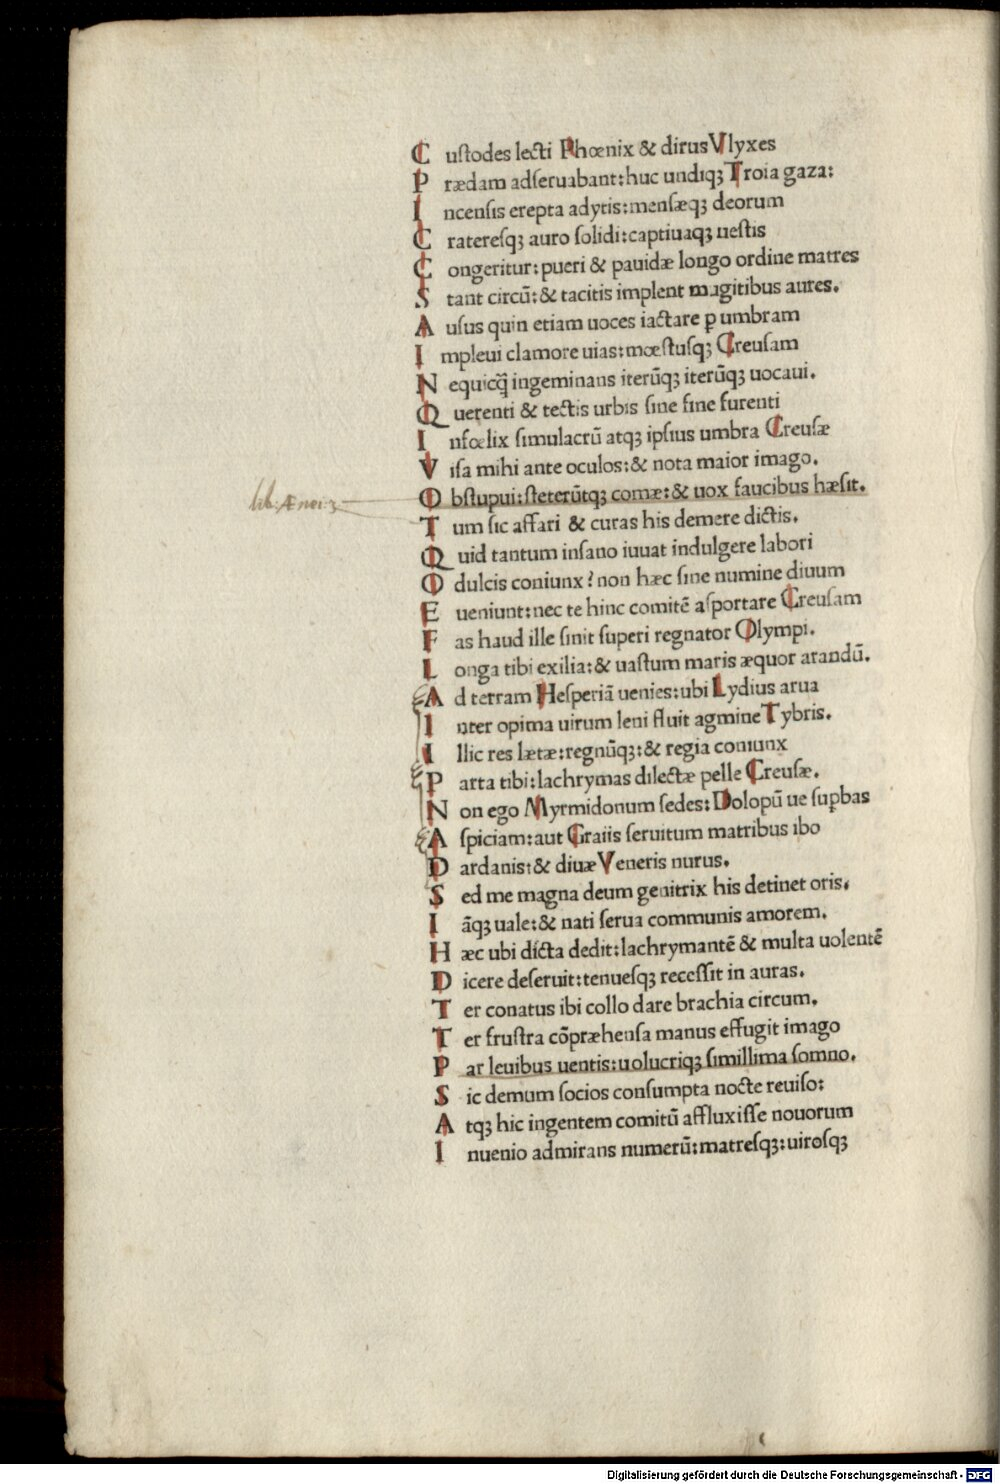 Custodes lecti Phœnix & dirus Vlyxes
Prædam adſeruabant: huc undiqꝫ Troia gaza:
Incenſis erepta adytis: menſæqꝫ deorum
Cratereſqꝫ auro ſolidi: captiuaqꝫ ueſtis
Congeritur: pueri & pauidæ longo ordine matres
Stant circū: & tacitis implent magitibus aures.
Auſus quin etiam uoces iactare ꝑ umbram
Impleui clamore uias: mœſtuſqꝫ Creuſam
Nequicq̄ ingeminans iterūqꝫ iterūqꝫ uocaui.
Querenti & tectis urbis ſine fine furenti
Infœlix ſimulacrū atqꝫ ipſius umbra Creuſæ
Viſa mihi ante oculos: & nota maior imago.
Obſtupui: ſteterūtqꝫ comæ: & uox faucibus hæſit.
Tum ſic affari & curas his demere dictis.
Quid tantum inſano iuuat indulgere labori
O dulcis coniunx? non hæc ſine numine diuum
Eueniunt: nec te hinc comitē aſportare Creuſam
Fas haud ille ſinit ſuperi regnator Olympi.
Longa tibi exilia: & uaſtum maris æquor arandū.
Ad terram Heſperiā uenies: ubi Lydius arua
Inter opima uirum leni fluit agmine Tybris.
Illic res lætæ: regnūqꝫ: & regia coniunx
Parta tibi: lachrymas dilectæ pelle Creuſæ.
Non ego Myrmidonum ſedes: Dolopū ue ſuꝑbas
Aſpiciam: aut Graiis ſeruitum matribus ibo
Dardanis: & diuæ Veneris nurus.
Sed me magna deum genitrix his detinet oris.
Iāqꝫ uale: & nati ſerua communis amorem.
Hæc ubi dicta dedit: lachrymantē & multa uolentē
Dicere deſeruit: tenueſqꝫ receſſit in auras.
Ter conatus ibi collo dare brachia circum.
Ter fruſtra cōpræhenſa manus effugit imago
Par leuibus uentis: uolucriqꝫ ſimillima ſomno.
Sic demum ſocios conſumpta nocte reuiſo:
Atqꝫ hic ingentem comitū affluxiſſe nouorum
Inuenio admirans numerū: matreſqꝫ: uiroſqꝫ
lib: Ænei:
Digitalisierung gefördert durch die Deutsche Forschungsgemeinschaft - DFG